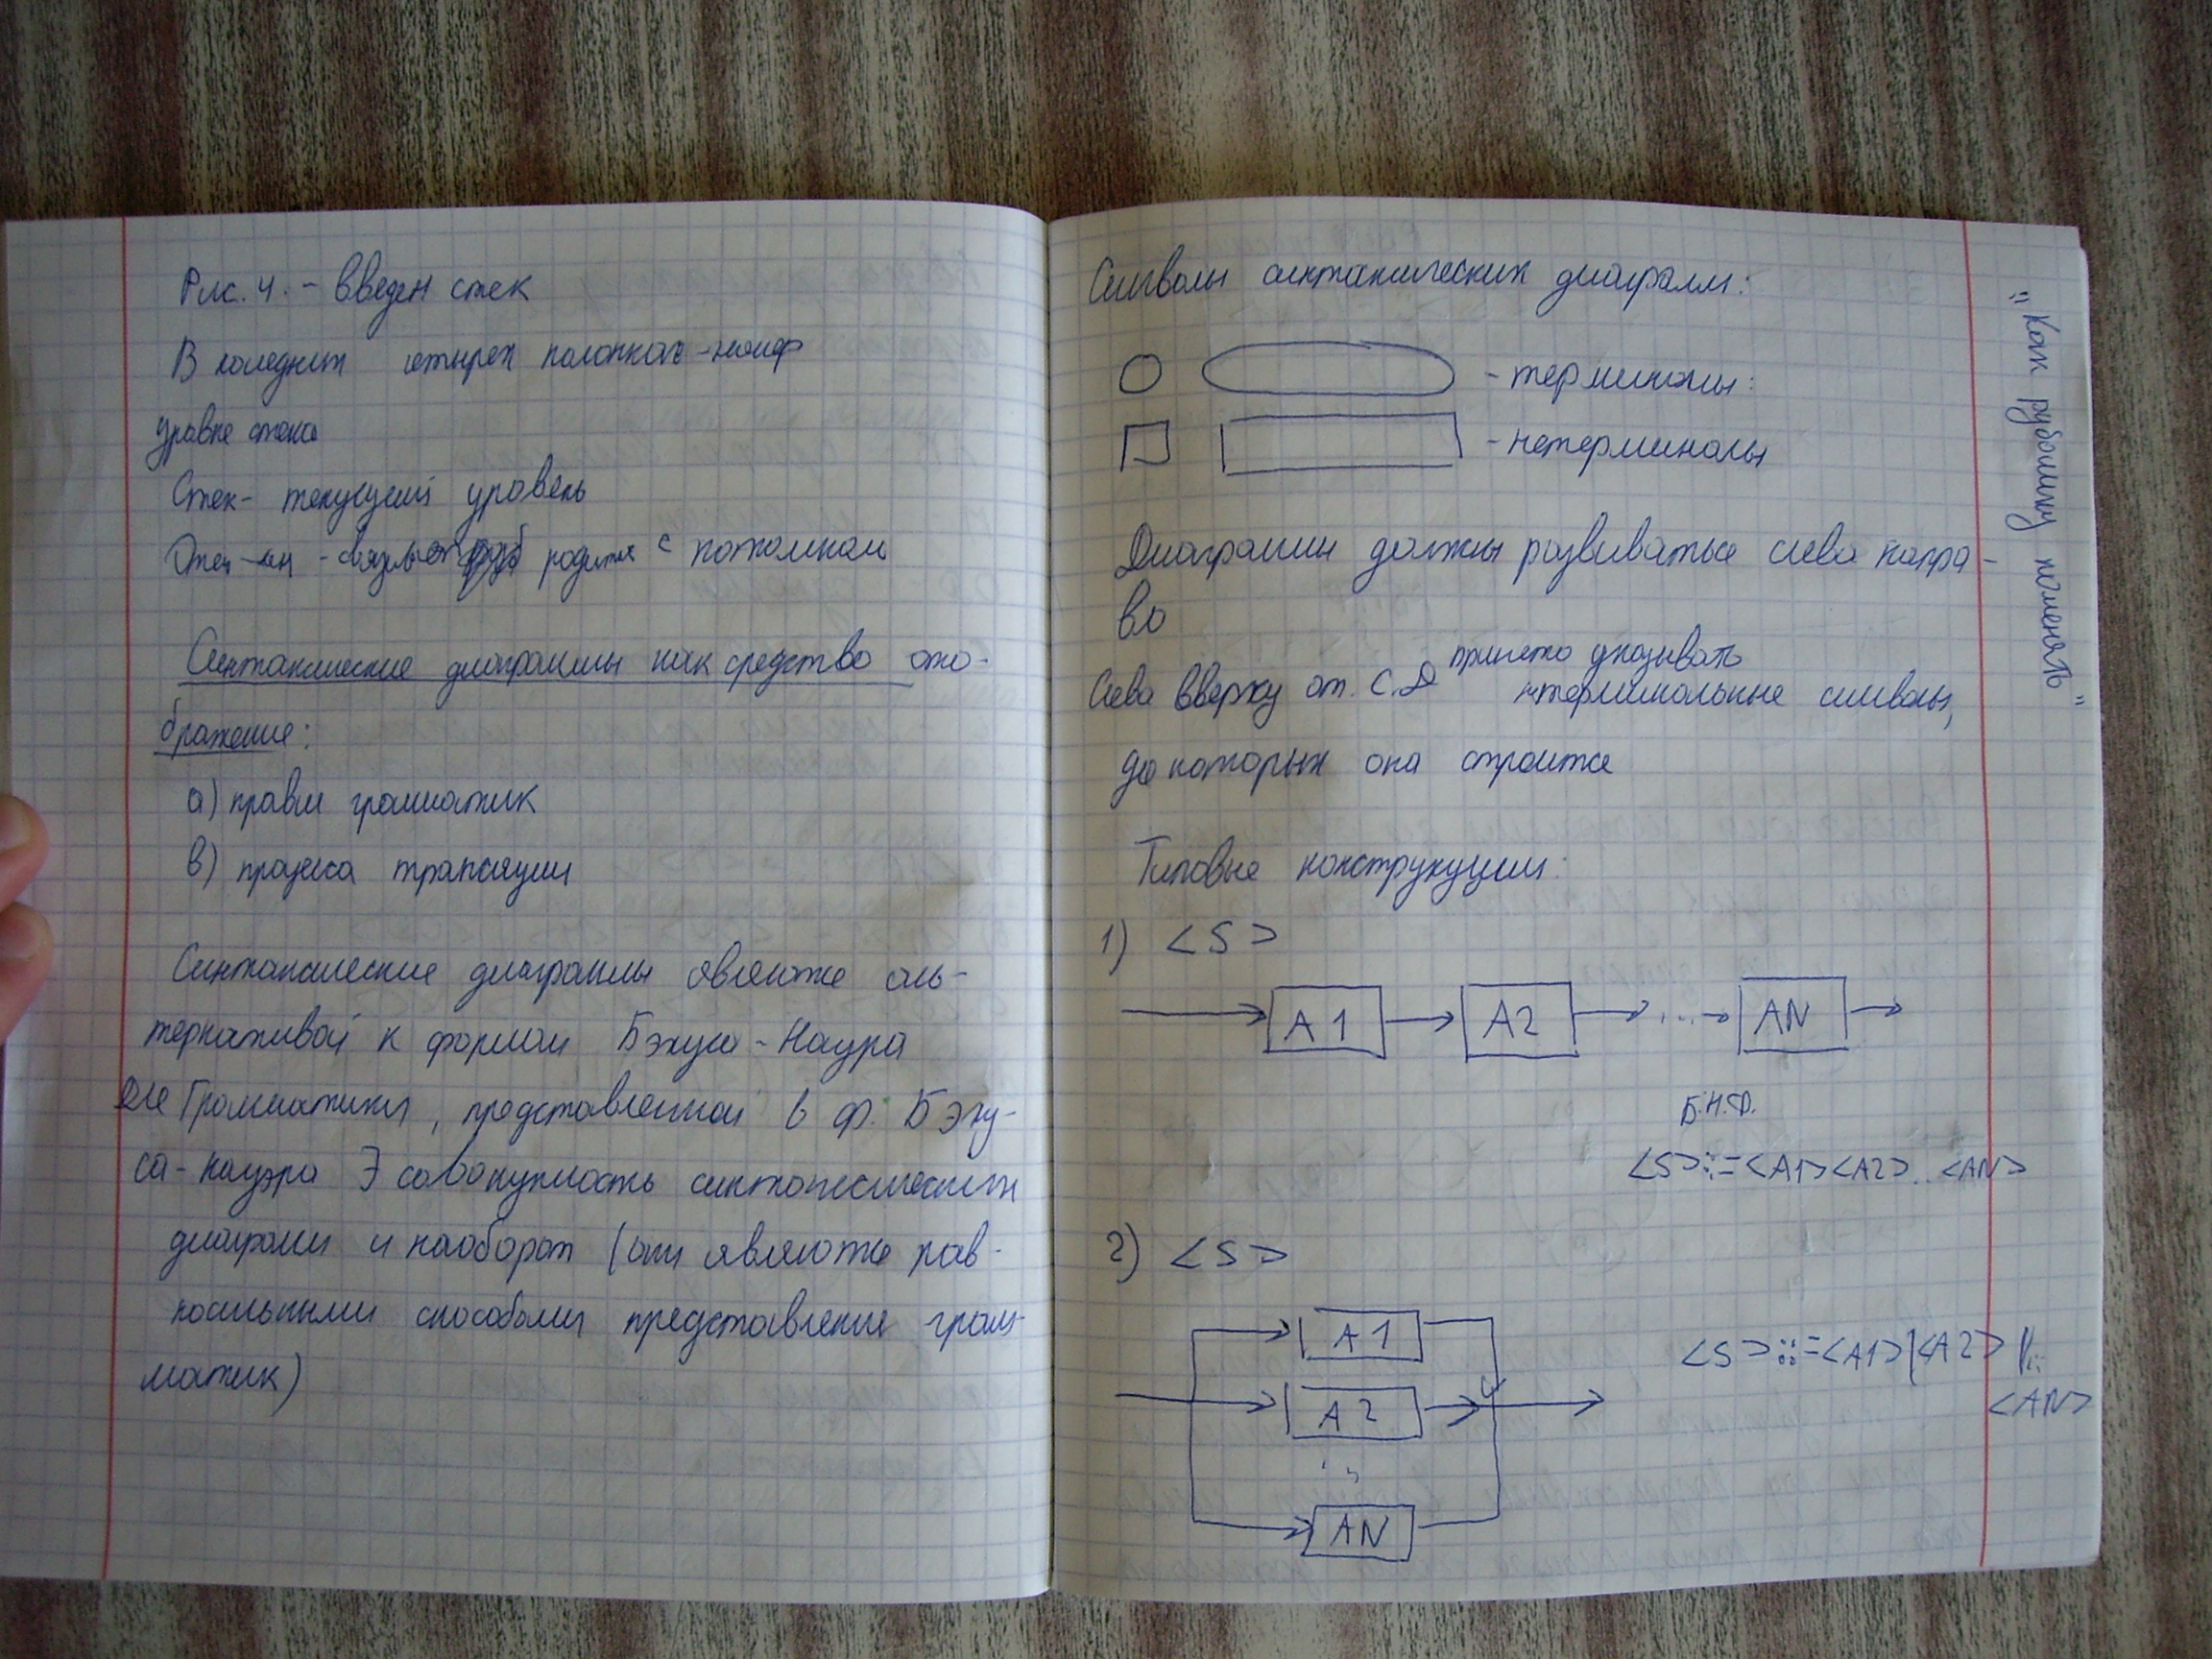 Рис. 4. - введен стек
В последних четырех колонках -
уровне стека
Стек - текущий уровень
родителя с потомком
Синтаксические диаграммы как средство ото-
бражение:
а) правил грамматик
в) процесса трансляции
Синтаксические диаграммы являются аль-
тернативой к формам Бэкуса - Наура
Для Грамматики, представленной в ф. Бэку-
са - Науэра ∃ совокупность синтаксических
диаграмм и наоборот (они являются рав-
носильными способами представление грам-
матик)
Символы синтаксических диаграмм:
- терминалы:
- нетерминалы
Диаграммы должны развиваться слева напра-
во
Слева вверху от. С.Д принято указывать нетерминальные символы,
до которых она строится
Типовые конструкции:
1) <S>
A1 A2 ... AN
Б.Н.Ф.
<S>::=<A1><A2>..<AN>
2) <S>
A1
<S>::=<A1>|<A2>|..
A2
<AN>
AN
"Как рубашку поменять"